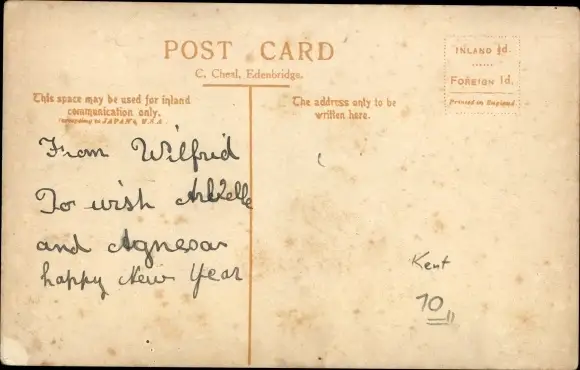 POST CARD
C. Cheal, Edenbridge.
INLAND ½d.
FOREIGN 1d.
Printed in England
This space may be used for inland
communication only.
to JAPAN & U.S.A.
The address only to be
written here.
From Wilfrid
To wish
and Agnes a
happy New Year
Kent
70